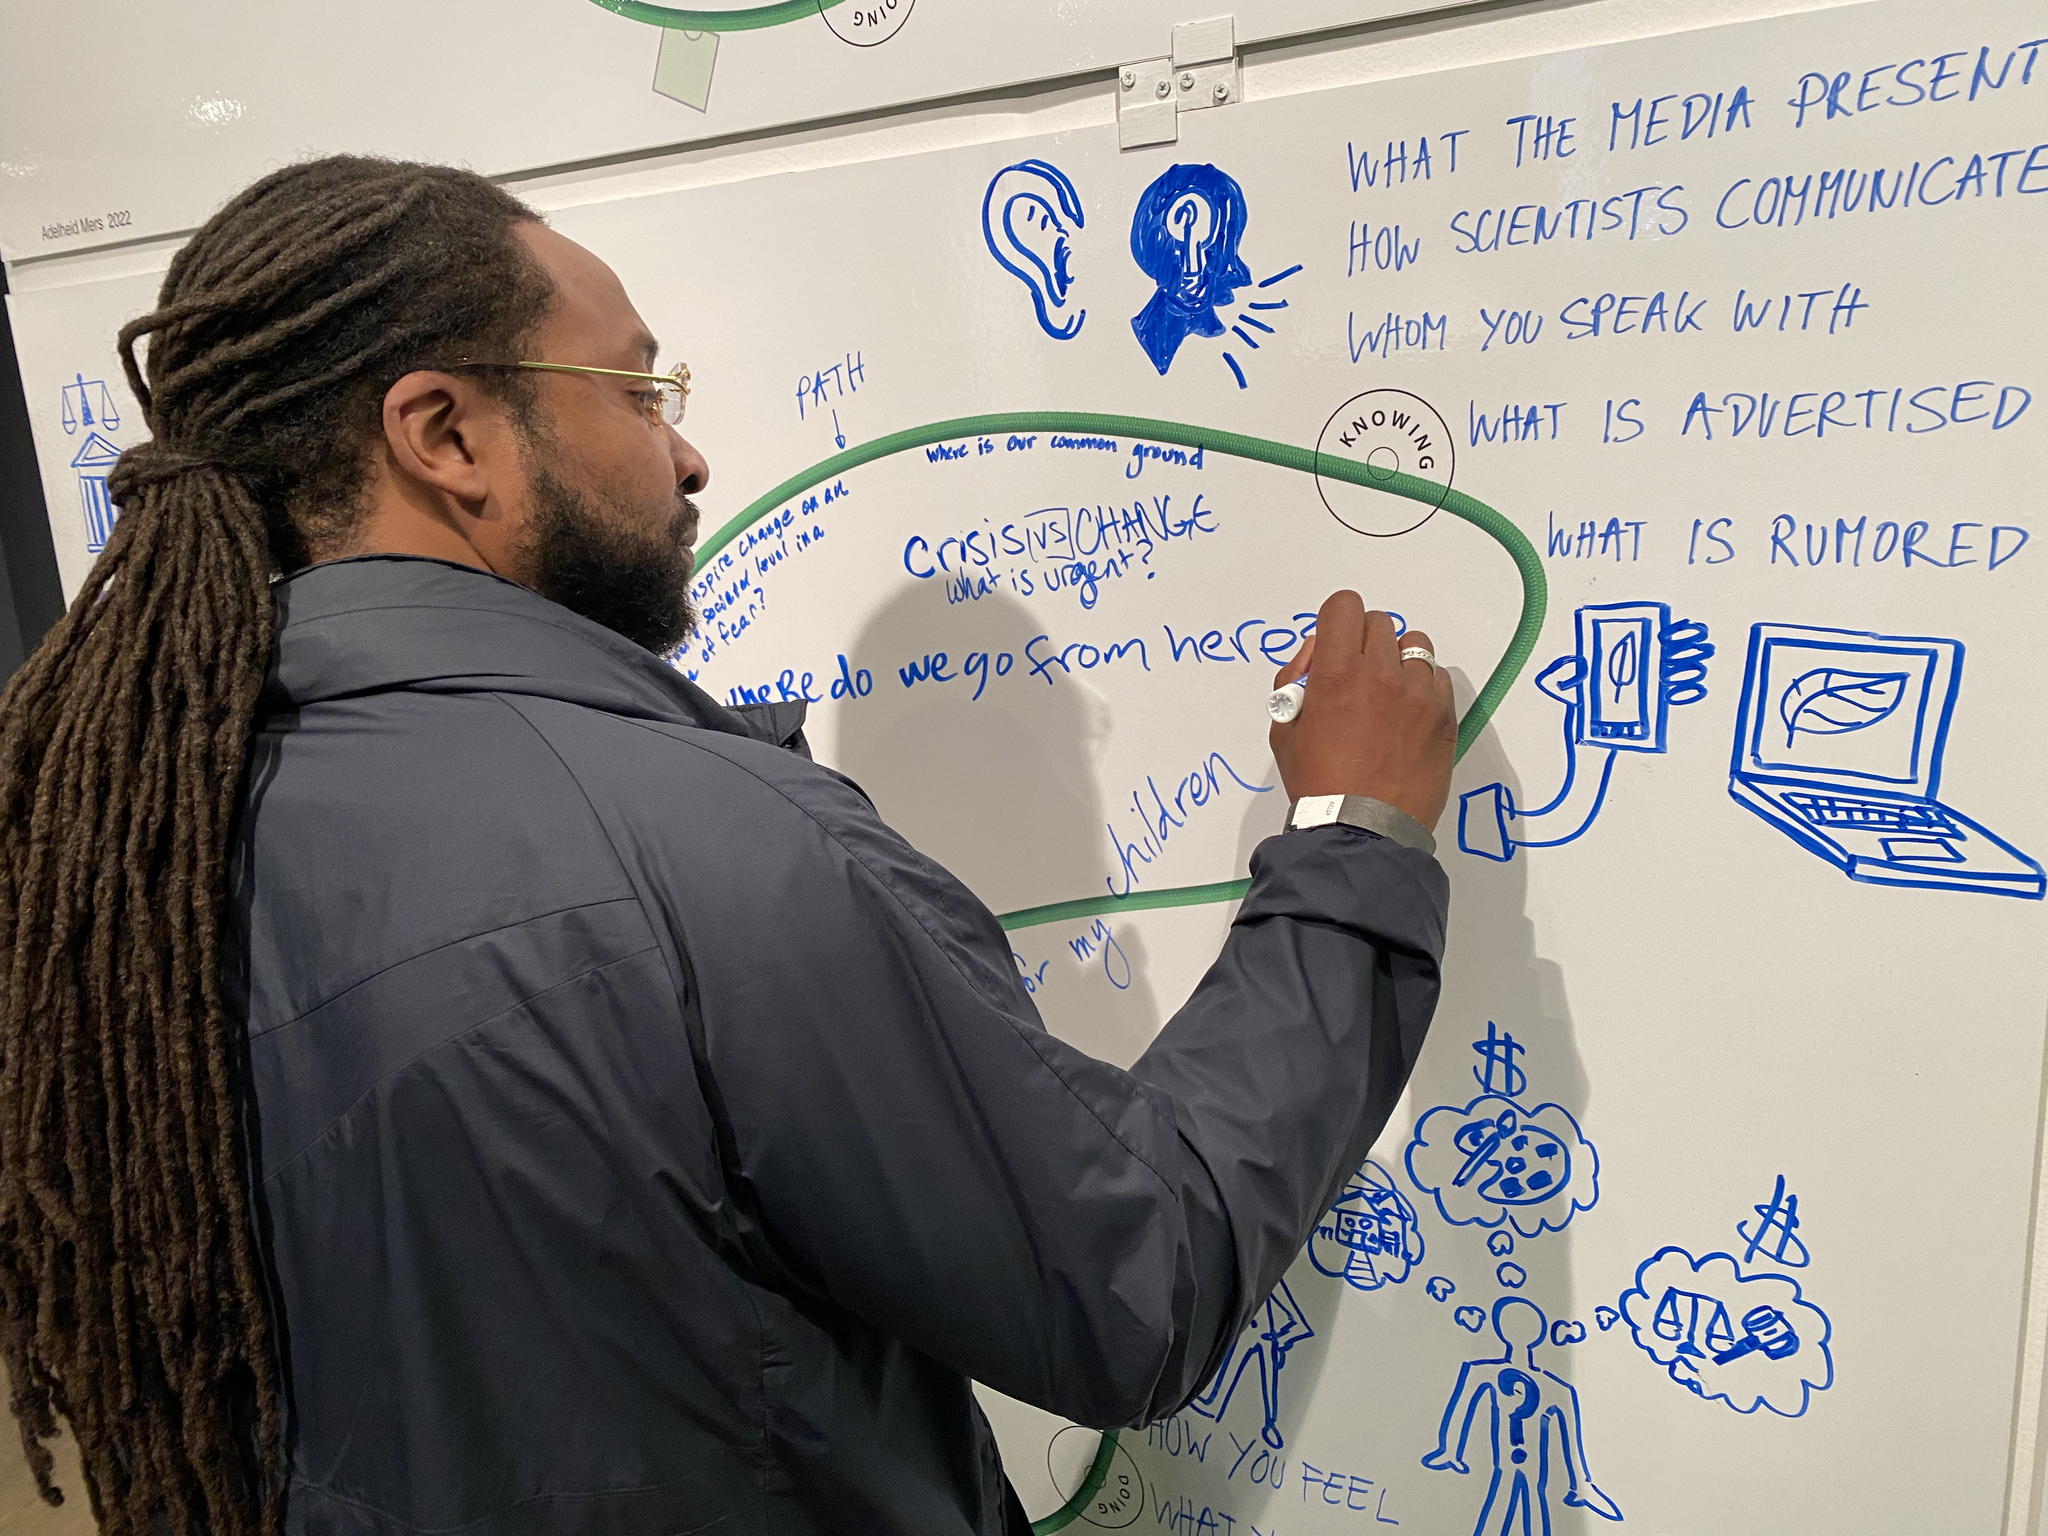 DOING
Adelheid Mers 2022
WHAT THE MEDIA PRESENT
HOW SCIENTISTS COMMUNICATE
WHOM YOU SPEAK WITH
WHAT IS ADVERTISED
WHAT IS RUMORED
KNOWING
PATH
where is our common ground
nspire change on an
societal level in a
of fear?
Crisis VS CHANGE
What is urgent?
where do we go from here?
for my children
$
$
?
HOW YOU FEEL
WHAT
DOING